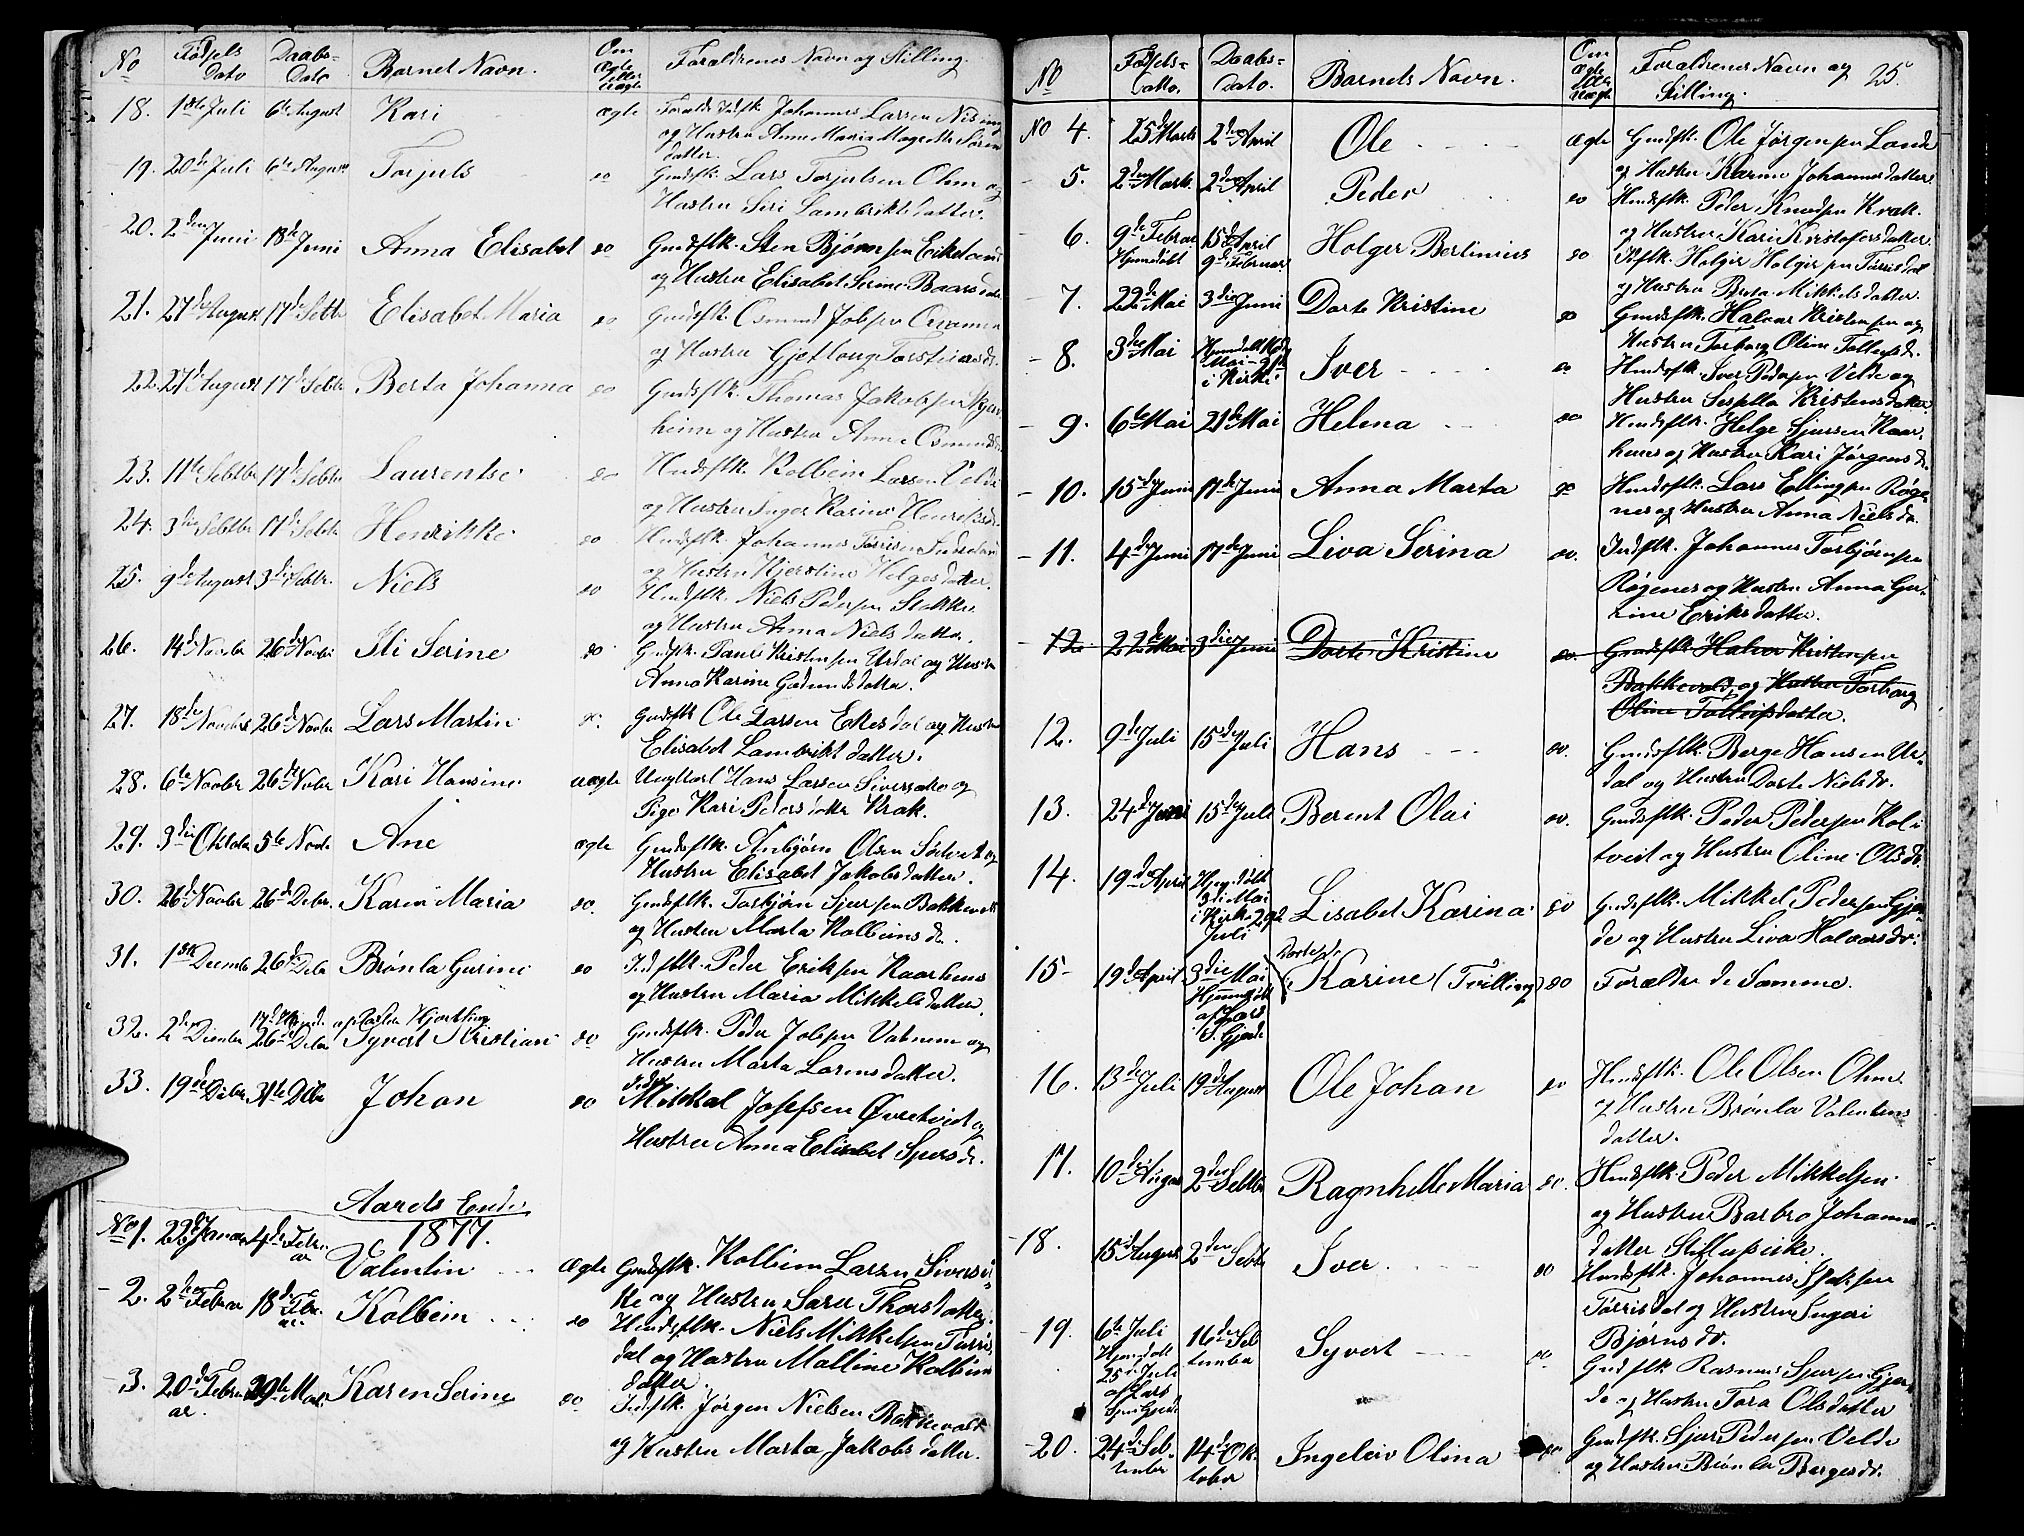 No Fødsels Dato Daabs= Dato Barnet Navn. Om Ægte eller uægte Forældrenes Navn og Stilling.
18. 18de Juli 6te August Kari ægte Johannes Larsen
og Hustru Anne Maria Sørens
datter.
19. 20de Juli 6te August Torjuls do Gmdsflk. Lars Torjulsen Ohm og
Hustru Siri Lambrikts datter.
20. 2den Juni 18de Juni Anna Elisabet do Gmdsflk. Sten Bjørnsen Eikeland
og Hustru Elisabet Serine Baars datr
21. 27de August 17de Sebtbr Elisabet Maria do Gmdsflk. Osmund Jobsen
og Hustru Gjetlong Torsteins dr.
22. 27de August 17de Sebtbr Berta Johanna do Gmdsflk. Thomas Jakobsen Skjæv
heim og Hustru Anne Osmunds dr.
23. 11te Sebtbr 17de Sebtbr Laurentse do Hmdsflk. Kolbein Larsen Velde
og Hustru Inger Karine Henriks dr.
24. 3die Sebtbr 17de Sebtbr Henrikke do Hmdsflk. Johannes Tørrisen
og Hustru Kjerstine Helges datter.
25. 9de August 3die Sebtbr. Niels do Hmdsflk. Niels Pedersen Stokke
og Hustru Anna Niels datter.
26. 14de Novbr 26de Novbr Ili Serine do Gmdsflk. Tauri Kristensen Urdal og Hustru
Anna Karine Gudmunds datter.
27. 18de Novbr 26de Novbr Lars Martin do. Gmdsflk Ole Larsen Eikesdal og Hustru
Elisabet Lambrikt datter.
28. 6te Novbr 26de Novbr Kari Hansine uægte Ungkarl Hans Larsen Siversake og
Pige Kari Peders datter Krak.
29. 3die Oktobr 5te Novbr Ane ægte Gmdsflk. Anbjørn Olsen og
Hustru Elisabet Jakobs datter.
30. 26de Novbr 26de Debr. Karen Maria do. Gmdsflk. Torbjørn Sjursen Bakkevolt
og Hustru Marta Kolbeins dr.
31. 1ste Decembr 26de Debr Brønla Gurine do Indsflk. Peder Eriksen Kaarhens
og Hustru Maria Mikkels datter.
17de Hjemd. af Carsten Hjortthing
32. 2den Decembr 26de Debr Syvert Kristian do Gmdsflk. Peder Jobsen Vatnem og
Hustru Marta Lorens datter.
33. 19de Debr 31te Debr Johan do Mikkal Josefsen Øvretveit og
Hustru Anna Elisabet Sjurs dr.
Aarets Ende
1877.
No 1. 22de Januar 4de Febr. ar Valentin ægte Gmdsflk. Kolbein Larsen Siversa=
ke og Hustru Sara Thors datter.
2. 2den Febrar 18de Febr. ar. Kolbein do Hmdsflk. Niels Mikkelsen Turris
dal og Hustru Malline Kolbeins
datter.
3. 20de Febru ar. 29te Marts Karen Serine do Indsflk. Jørgen Nielsen Bakkevolt
og Hustru Marta Jakobs datter.
No Fødsels= Datto. Daabs= Dato. Barnets Navn. Om Ægte eller uægte Forældrenes Navn og Stilling. 25.
No 4. 25de Marts 2den April Ole ægte Gmdsflk. Ole Jørgensen Lande
og Hustru Karine Johannes datter.
5. 2den Marts. 2den April Peder do Hmdsflk. Peder Knudsen Krak.
og Hustru Kari Kristofers datter.
6. 9de Febrar Hjemdøbt 15de April 9de Februar Holger Bertinius do Idsflk. Holger Holgersen Tørrisdal
og Hustru Berta Mikkels datter.
7. 22de Mai 3die Juni Dorte Kristine do Gmdsflk. Halvor Kristensen og
Hustru Torborg Oline Tollefs d.
8. 3die Mai Hjemdøbt Mai i Kirke Iver do Hmdsflk. Iver Pedersen Velde og
Hustru Sesella Kristens datter.
9. 6te Mai 21de Mai Helena do Hmdsflk. Helge Sjursen Kaar=
henes og Hustru Kari Jørgens d.
10. 15de Juni 17de Juni Anna Marta do Hmdsflk. Lars Ellingsen Røge=
nes og Hustru Anna Niels dr.
11. 4de Juni 17de Juni Liva Serina do. Indsflk. Johannes Torbjørnsen
Røgenes og Hustru Anna Gu=
rine Eriks datter.
12 22de Mai 3die Juni Dorte Kristine do. Gmdsflk Halvor Kristensen
Bakkevold, og Hustru Torborg
Oline Tollefsdatter.
12. 9de Juli 15de Juli Hans do. Gmdsflk. Berge Hansen Ur=
dal og Hustru Dorte Niels dr.
13. 24de Juni 15de Juli Berent Olai do. Gmdsflk. Peder Pedersen Kol=
tveit og Hustru Oline Ols dr.
14. 19de April Hjemdøbt 3di Mai i Kirke 29 Juli Lisabet Karina. do Gmdsflk. Mikkel Pedersen Gjer=
de og Hustru Liva Halvors dr.
15 19de April 3die Mai Hjemdøbt af Lars S. Gjerde Karine (Tvilling) do Forældre de Samme.
16. 13de Juli 19de August Ole Johan do Hmdsflk. Ole Olsen Ohm
og Hustru Brønla Valentins
datter.
17. 10de August 2den Sebtbr Ragnhelle Maria do. Hmdsflk. Peder Mikkelsen
og Hustru Barbro Johanne
datter
18. 15de August 2den Sebtbr Iver do Hmdsflk. Johannes
Tørrisdal og Hustru Ingeri
Bjørns dr.
19. 6te Juli Hjemdøbt 25 i Juli af Lars Gjerde 16de Seb tember Syvert do Gmdsflk Rasmus Sjursen Gjer=
de og Hustru Tora Ols datter
20. 24de Seb tember 14de Ok tober Ingeleiv Olina do Gmdsflk. Sjur Pedersen Velde
og Hustru Brønla Berges dr.